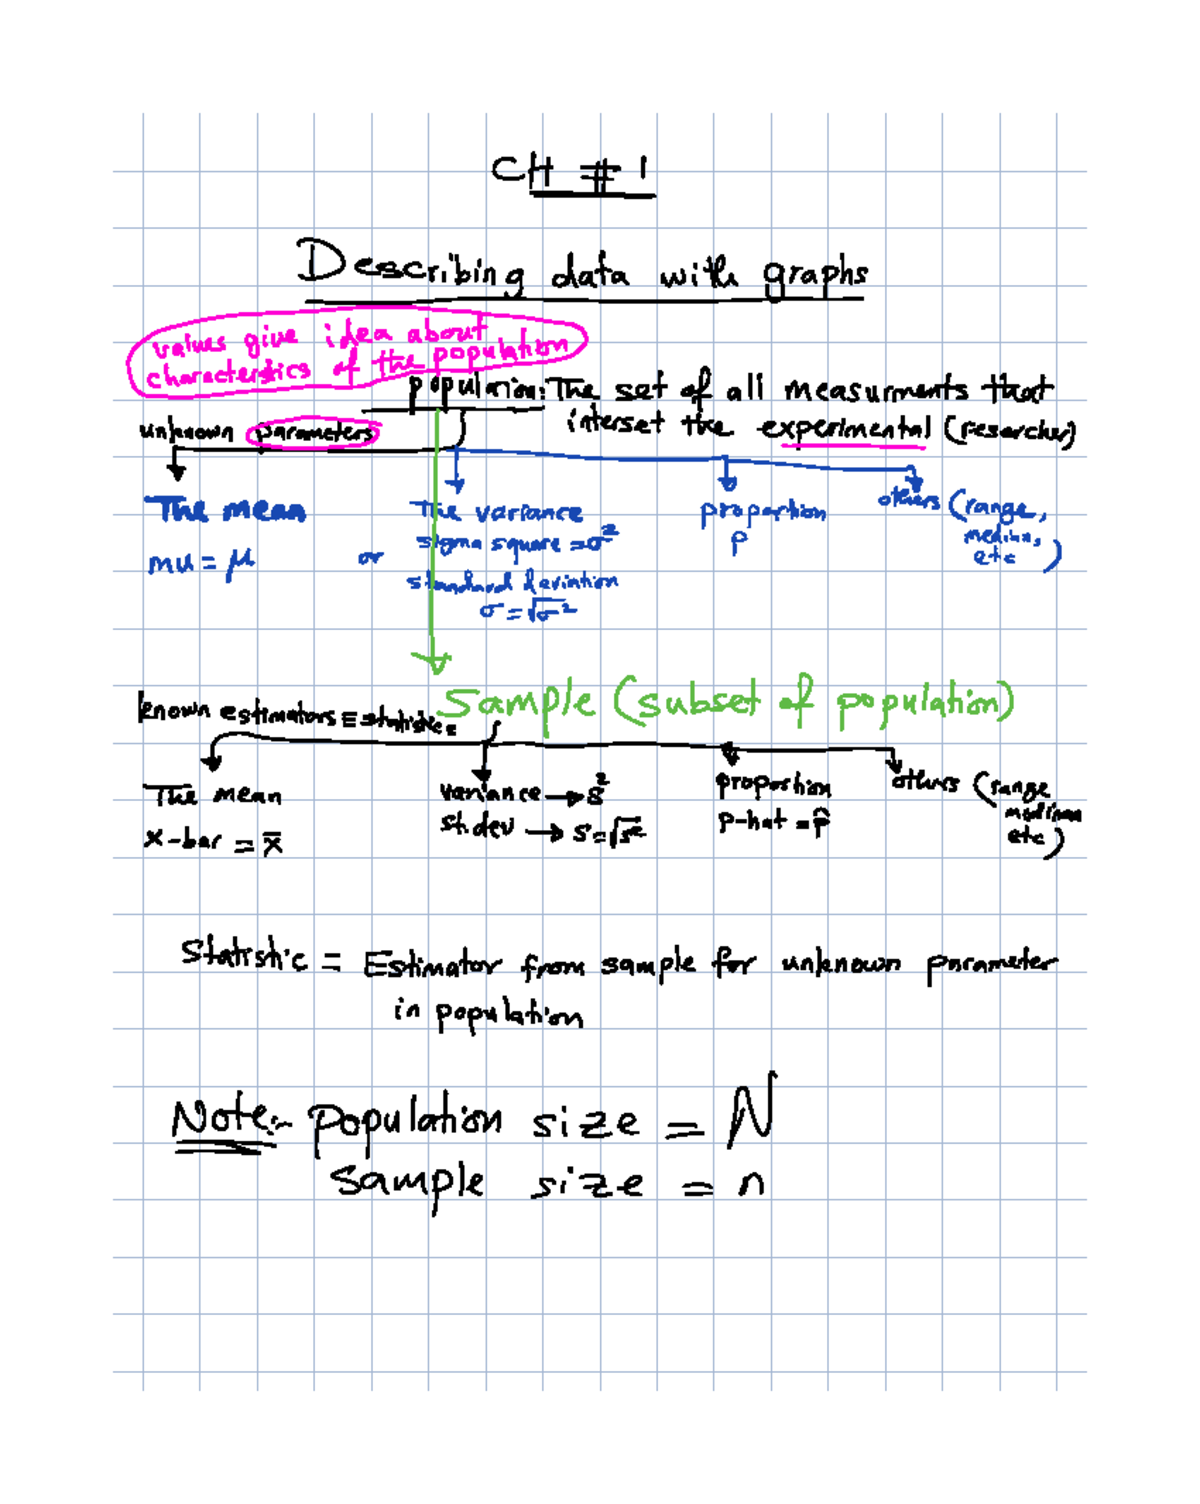 CH # 1
Describing data with graphs
values give idea about
characterstics of the population
population: The set of all measurments that
interset the experimental (researcher)
unknown parameters
The mean
mu = μ
or
The variance
sigma square = σ²
standard deviation
σ = √σ²
proportion
p
others (range,
median,
etc)
Sample (subset of population)
known estimators ≡ statistics
The mean
x-bar = x̄
variance → s²
st.dev → s = √s²
proportion
p-hat = p̂
others (range
median
etc)
Statistic = Estimator from sample for unknown parameter
in population
Note:- Population size = N
Sample size = n